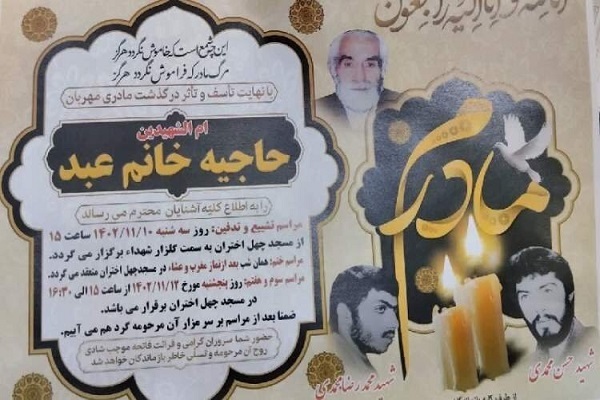 انا لله و انا الیه راجعون
این چشمه است که خاموش نگردد هرگز
مرگ مادر که فراموش نگردد هرگز
با نهایت تأسف و تأثر درگذشت مادری مهربان
ام الشهیدین
حاجیه خانم عبد
را به اطلاع کلیه آشنایان محترم می رساند
مراسم تشییع و تدفین: روز سه شنبه ۱۴۰۲/۱۱/۱۰ ساعت ۱۵
از مسجد چهل اختران به سمت گلزار شهداء برگزار می گردد.
مراسم ختم: همان شب بعد از نماز مغرب و عشاء در مسجد چهل اختران منعقد می گردد.
مراسم سوم و هفتم: روز پنجشنبه مورخ ۱۴۰۲/۱۱/۱۲ از ساعت ۱۵ الی ۱۶:۳۰
در مسجد چهل اختران برقرار می باشد.
ضمنا بعد از مراسم بر سر مزار آن مرحومه گرد هم می آییم.
حضور شما سروران گرامی و قرائت فاتحه موجب شادی
روح آن مرحومه و تسلی خاطر بازماندگان خواهد شد
مادرم
شهید حسن محمدی
شهید محمدرضا محمدی